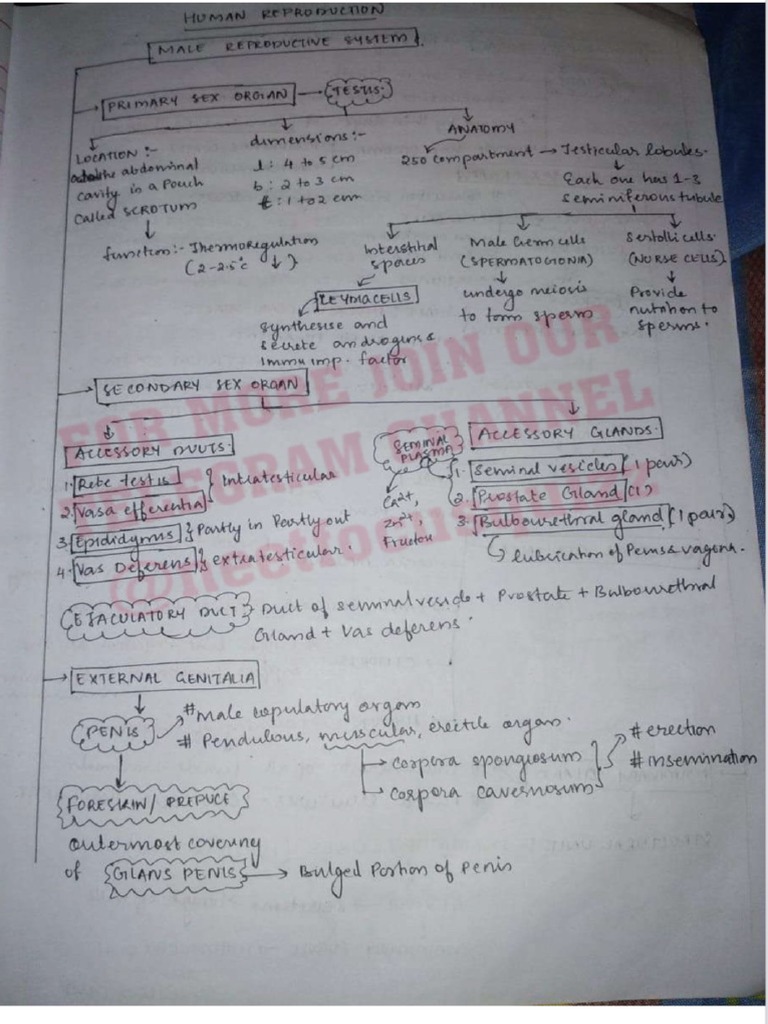 HUMAN REPRODUCTION
MALE REPRODUCTIVE SYSTEM.
PRIMARY SEX ORGAN → TESTIS.
LOCATION :-
abdominal
cavity in a Pouch
Called SCROTUM
function:- Thermoregulation
(2-2.5°C ↓)
dimensions:-
l : 4 to 5 cm
b : 2 to 3 cm
t : 1 to 2 cm
ANATOMY
250 compartment → Testicular lobules.
Each one has 1-3
seminiferous tubule
Interstitial
spaces
LEYDIG CELLS
Synthesise and
secrete androgens &
immu imp. factor
Male Germ cells
(SPERMATOGONIA)
undergo meiosis
to form sperm
Sertolli cells.
(NURSE CELLS)
Provide
nutrition to
sperms.
SECONDARY SEX ORGAN
ACCESSORY DUCTS.
1. Rete testis
2. Vasa efferentia
} Intratesticular
3. Epididymis } Partly in Partly out
4. Vas Deferens } extratesticular.
SEMINAL
PLASMA
Ca2+,
Zn2+,
Fructose
ACCESSORY GLANDS.
1. Seminal vesicles (1 pair)
2. Prostate Gland (1)
3. Bulbourethral gland (1 pair)
lubrication of Penis & vagina.
EJACULATORY DUCT } Duct of seminal vesicle + Prostate + Bulbourethral
Gland + Vas deferens.
EXTERNAL GENITALIA
PENIS
# Male copulatory organ
# Pendulous, muscular, erectile organ.
corpora spongiosum
corpora cavernosum
# erection
# insemination
FORESKIN / PREPUCE
outermost covering
of GLANS PENIS → Bulged Portion of Penis
FOR MORE JOIN OUR
TELEGRAM CHANNEL